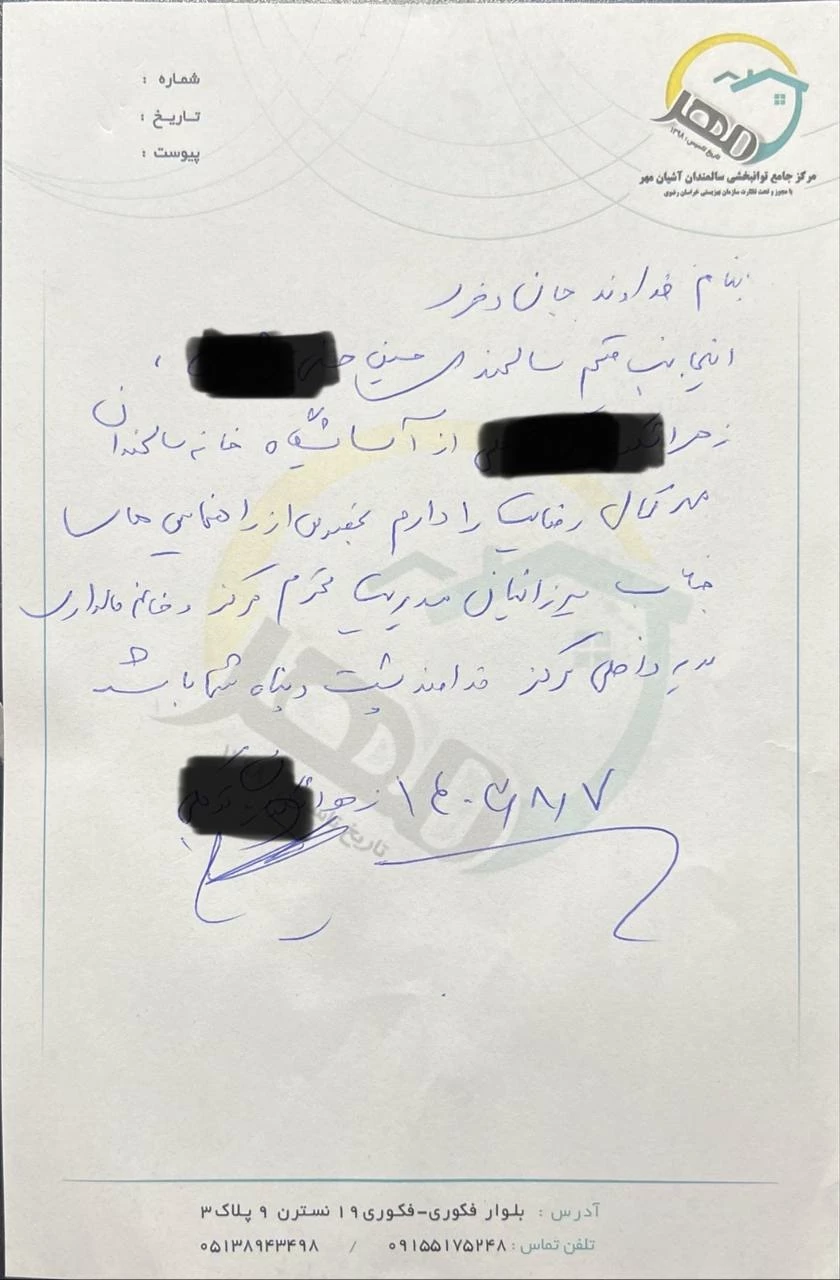 شماره :
تاریخ :
پیوست :
مهر
تاریخ تاسیس: ۱۳۹۸
مرکز جامع توانبخشی سالمندان آشیان مهر
با مجوز و تحت نظارت سازمان بهزیستی خراسان رضوی
بنام خداوند جان و خرد
اینجانب قیم سالمند حسین
زهرا از آسایشگاه خانه سالمندان
مهر کمال رضایت را دارم بخصوص از راهنمایی های
جناب میرزائیان مدیریت محترم مرکز و خانم
مدیر داخلی مرکز خداوند پشت و پناه شما باشد
۱۴۰۳/۸/۷ زهرا
آدرس : بلوار فکوری-فکوری ۱۹ نسترن ۹ پلاک ۳
تلفن تماس : ۰۹۱۵۵۱۷۵۲۴۸ / ۰۵۱۳۸۹۴۳۴۹۸